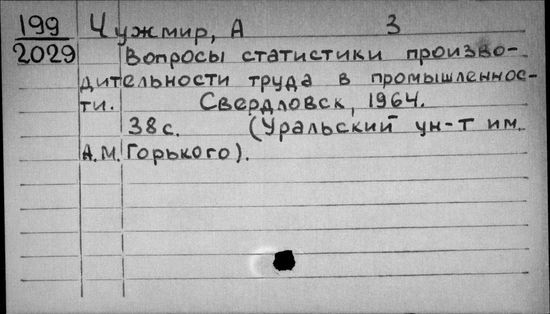 199 Чужмир, А 3
2029 Вопросы статистики произво-
дительности труда в промышленнос-
ти. Свердловск, 1964.
38 с. (Уральский ун-т им.
А.М. Горького).